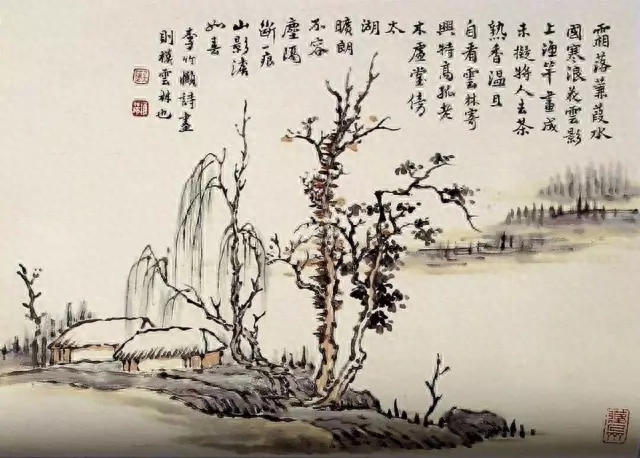 霜落蒹葭水
國寒浪花雲影
上漁竿畫成
未擬將人去茶
熟香溫且
自看雲林寄
興特高孤老
木虛堂倚
太
湖
曠朗
不容
塵隔
斷一痕
山影澹
如無
李竹懶詩畫
則橅雲林也